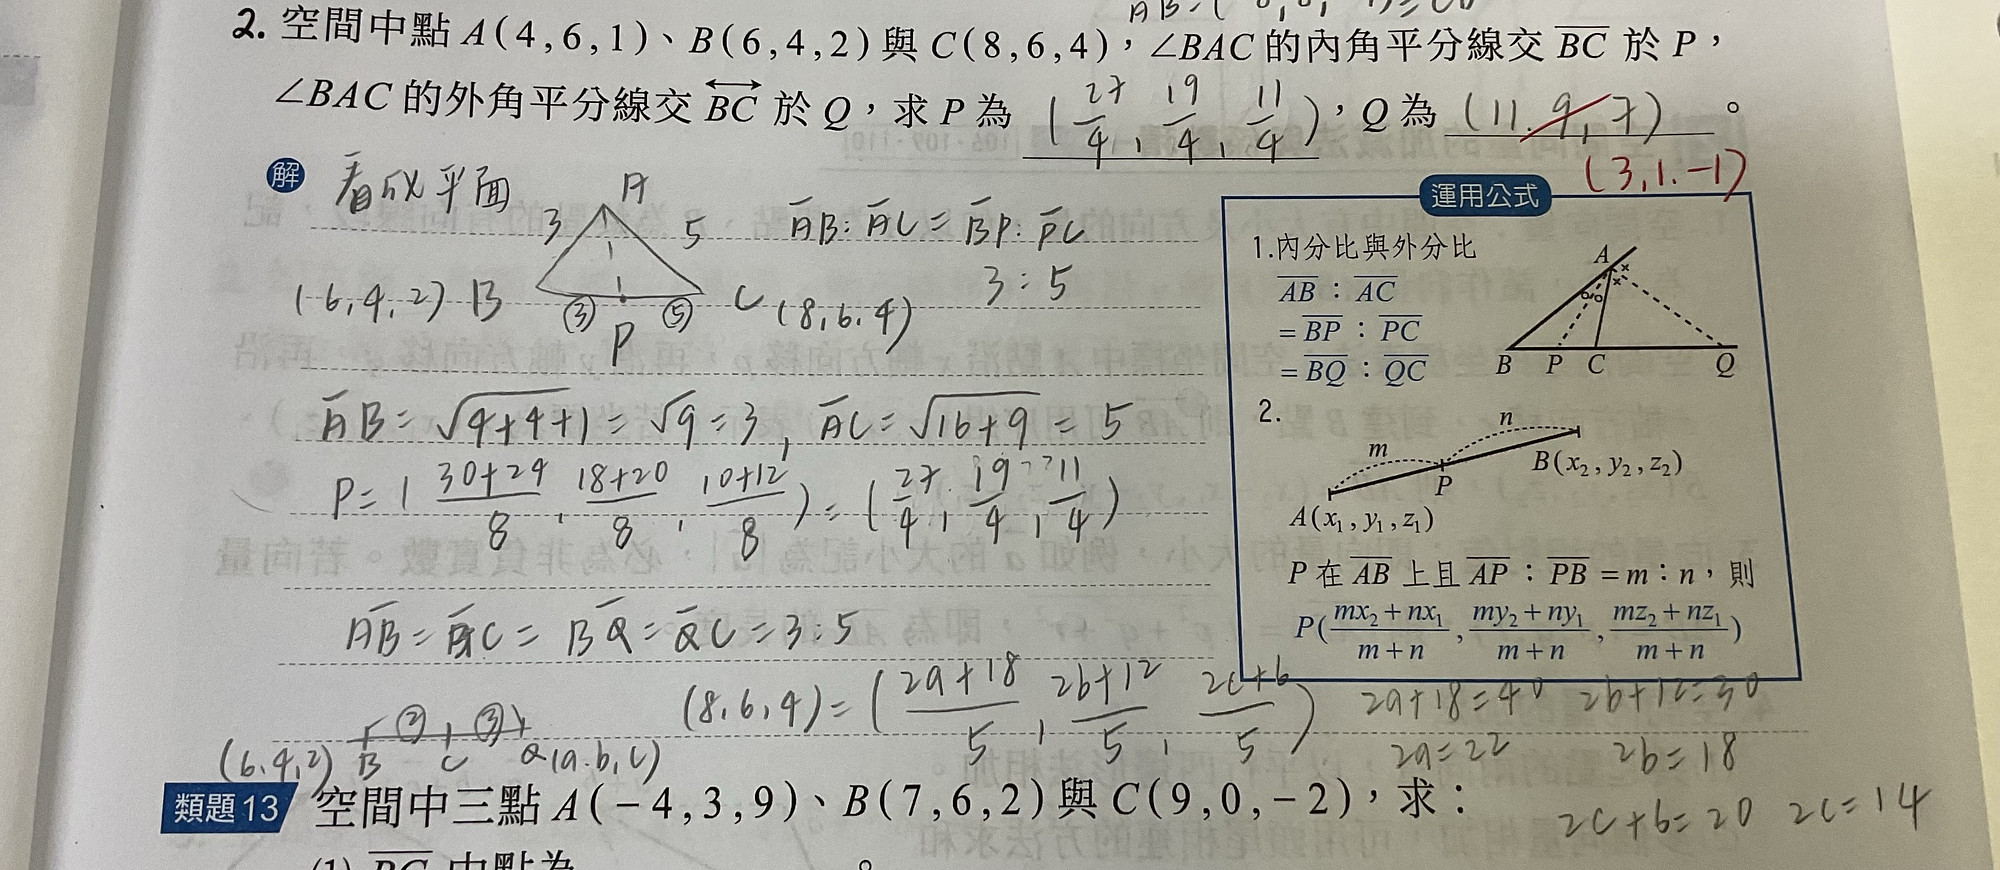 2. 空間中點 A(4,6,1)、B(6,4,2)與 C(8,6,4)，∠BAC 的內角平分線交 BC 於 P，
∠BAC 的外角平分線交 BC 於 Q，求 P 為 (27/4, 19/4, 11/4)，Q 為 (11, 9, 7)。
(3,1,-1)
解 看成平面
A
3 5
AB:AC=BP:PC
3:5
(6,4,2) B ③ P ⑤ C (8,6,4)
AB=√4+4+1=√9=3, AC=√16+9=5
P=(30+24/8, 18+20/8, 10+12/8)=(27/4, 19/4, 11/4)
AB=AC=BQ=QC=3:5
(8,6,4)=(2a+18/5, 2b+12/5, 2c+6/5) 2a+18=40 2b+12=30
② ③
2a=22 2b=18
(6,4,2) B C Q(a,b,c)
2c+6=20 2c=14
運用公式
1.內分比與外分比
AB：AC
=BP：PC
=BQ：QC
A
B P C Q
2.
m n
A(x₁,y₁,z₁) P B(x₂,y₂,z₂)
P 在 AB 上且 AP：PB=m：n，則
P(mx₂+nx₁/m+n, my₂+ny₁/m+n, mz₂+nz₁/m+n)
類題13 空間中三點 A(−4,3,9)、B(7,6,2)與 C(9,0,−2)，求：